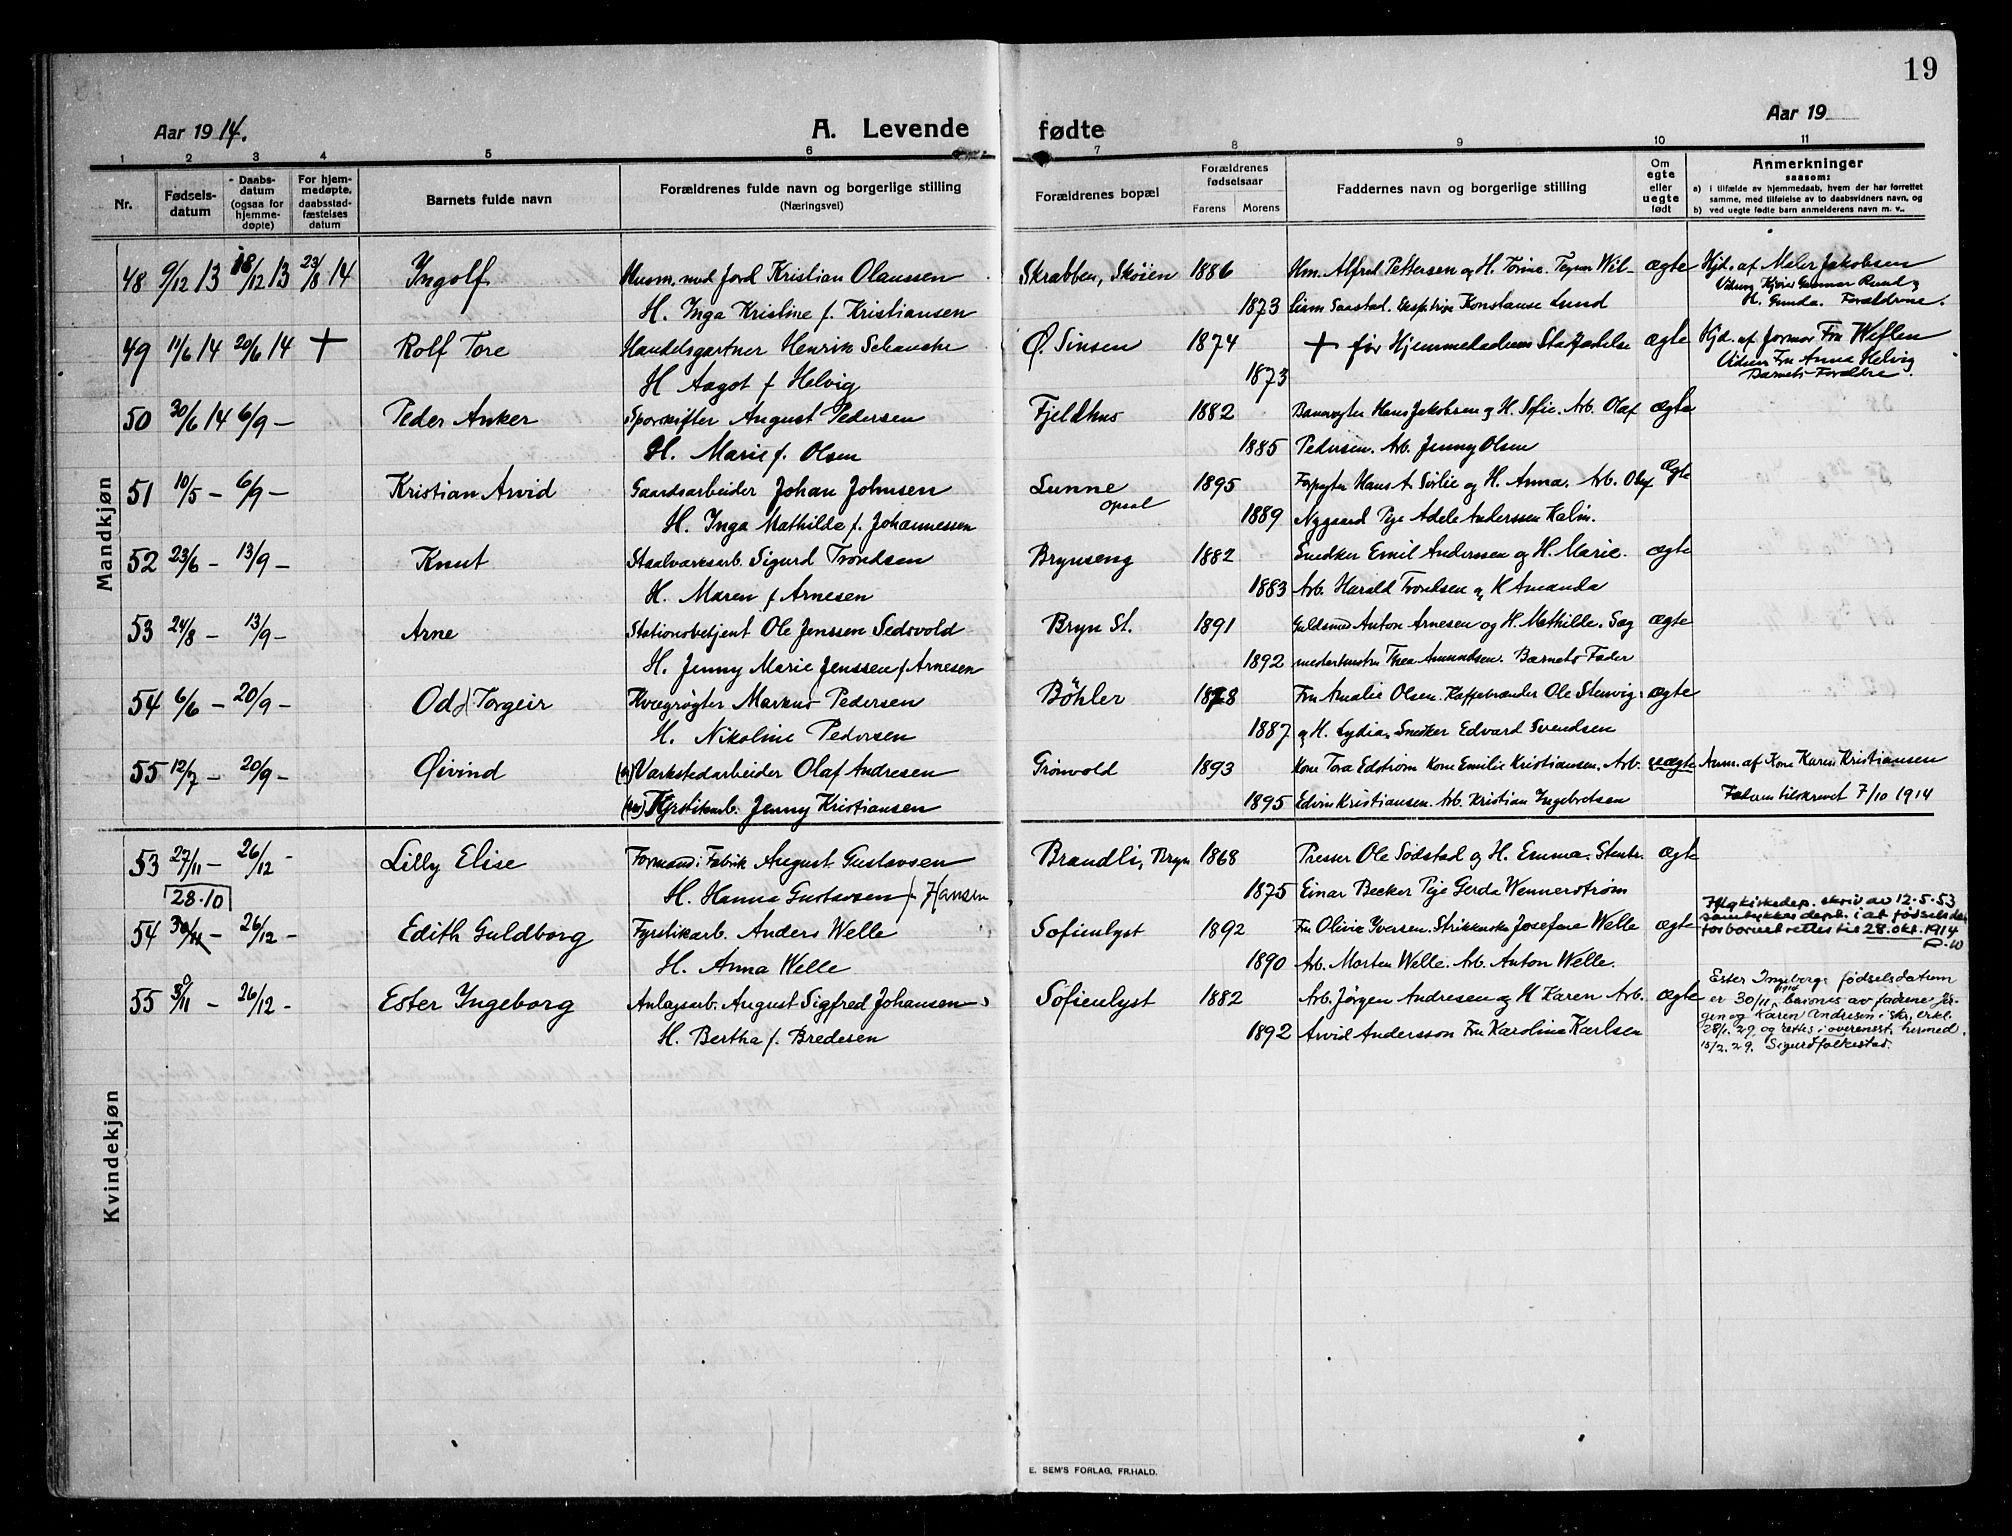 19
Aar 1914.
A. Levende fødte
Aar 19
1 2 3 4 5 6 7 8 9 10 11
Nr.
Fødsels-
datum
Daabs-
datum
(ogsaa for
hjemme-
døpte)
For hjem-
medøpte,
daabsstad-
fæstelses
datum
Barnets fulde navn
Forældrenes fulde navn og borgerlige stilling
(Næringsvei)
Forældrenes bopæl
Forældrenes
fødselsaar
Farens Morens
Faddernes navn og borgerlige stilling
Om
egte
eller
uegte
født
Anmerkninger
saasom:
a) i tilfælde av hjemmedaab, hvem der har forrettet
samme, med tilføielse av to daabsvidners navn, og
b) ved uegte fødte barn anmelderens navn m. v..
Mandkjøn
48 9/12 13 18/12 13 23/8 14 Ingolf Husm. med Jord Kristian Olaussen Skrabben, Skøien 1886 Hm. Alfred Pettersen og H. Tegner Wil- ægte Hjd. af Maler Jakobsen
H. Inga Kristine f. Kristiansen 1873 Saastad. Konstanse Lund H. Gunda. Forældrene.
49 11/6 14 20/6 14 + Rolf Tore Handelsgartner Henrik Schanche Ø. Sinsen 1874 + før Hjemmedaabens Stadfæstelse ægte Hjd. af Jormor Fru Weflen
H. Aagot f. Helvig 1873 Vidner Fru Anna Helvig
Barnets Forældre.
50 30/6 14 6/9 — Peder Anker Sporskifter August Pedersen Fjeldhus 1882 Banevogter Hans Jakobsen og H. Sofie. Arb. Olaf ægte
H. Marie f. Olsen 1885 Pedersen. Arb. Jenny Olsen
51 10/5 — 6/9 — Kristian Arvid Gaardsarbeider Johan Johnsen Lunne 1895 Forpagter Hans A. Svilie og H. Anna. Arb. Olaf Ægte
H. Inga Mathilde f. Johannessen Opsal 1889 Nygaard Pige Adele Anderssen Kalm.
52 23/6 — 13/9 — Knut Staalværksarb. Sigurd Trondsen Brynseng 1882 Snedker Emil Anderssen og H. Marie. ægte
H. Maren f. Arnesen 1883 Arb. Harald Trondsen og H Amanda
53 24/8 — 13/9 — Arne Stationsbetjent Ole Jenssen Sedsvold Bryn St. 1891 Guldsmed Anton Arnesen og H. Mathilde. Sag ægte
H. Jenny Marie Jenssen f. Arnesen 1892 mesterhustru Thea Amundsen. Barnets Fader
54 6/6 — 20/9 — Odd Torgeir Kvægrøgter Markus Pedersen Böhler 1878 Fru Amalie Olsen. Kaffebrænder Ole Stenvig ægte
H. Nikoline Pedersen 1887 og H. Lydia, Snedker Edvard Svendsen
55 12/7 — 20/9 — Øivind Værkstedarbeider Olaf Andresen Grönvold 1893 Kone Tora Edstrøm Kone Emilie Kristiansen. Arb. uægte Anm. af Kone Karen Kristiansen
Fyrstikarb. Jenny Kristiansen 1895 Edvin Kristiansen. Arb. Kristian Ingebretsen tilskrevet 7/10 1914
Kvindekjøn
53 27/11 — 26/12 — Lilly Elise Formand i Fabrik August Gustavsen Brandli, Bryn 1868 Presser Ole Södstad og H. Emma. Stentr. ægte
H. Hanna Gustavsen f. Hansen 1875 Einar Becker Pige Gerda Wennerstrøm
28.10
54 30/11 — 26/12 — Edith Guldborg Fyrstikarb. Anders Welle Sofienlyst 1892 Fru Olivie Iversen. Strikkerske Josefine Welle ægte
H. Anna Welle 1890 Arb. Morten Welle. Arb. Anton Welle.
Iflg kirkedep. skriv av 12.5.53
samtykker dep. i at fødselsdag
for barnet rettes til 28. okt. 1914
55 30/11 — 26/12 — Ester Ingeborg Anlægsarb. August Sigfred Johansen Sofienlyst 1882 Arb. Jørgen Andresen og H Karen Arb. ægte
H. Bertha f. Bredesen 1892 Arvid Andersson Fru Karolina Karlsen
Ester Ingeborgs fødselsdatum
er 30/11 1914, bevidnes av fadrene Jør-
gen og Karen Andresen i skr. erkl.
28/1. 29, og rettes i overenest. hermed.
15/2. 29. Sigurd Folkestad.
E. SEM'S FORLAG, FR.HALD.